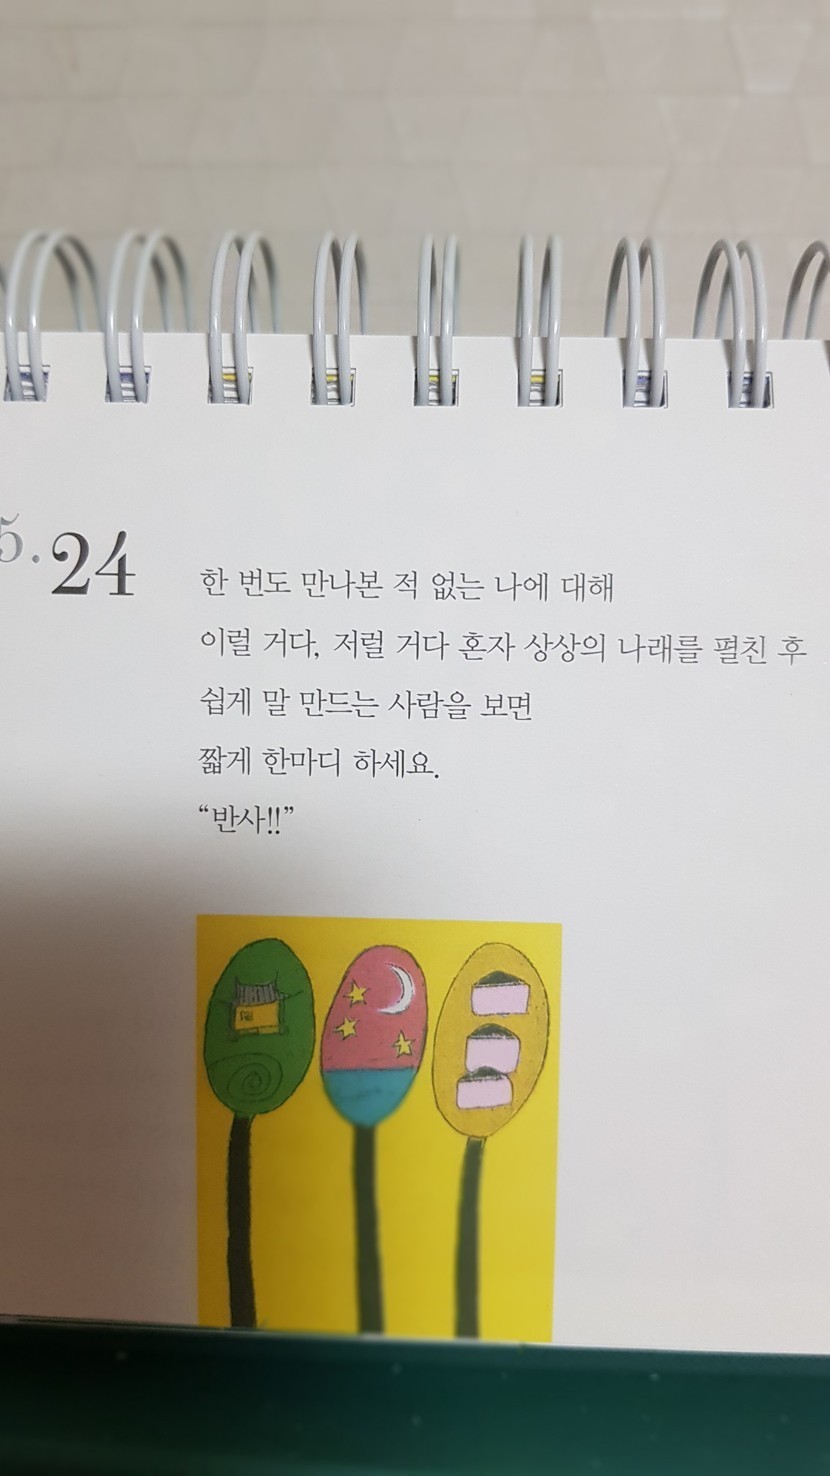 5.24
한 번도 만나본 적 없는 나에 대해
이럴 거다, 저럴 거다 혼자 상상의 나래를 펼친 후
쉽게 말 만드는 사람을 보면
짧게 한마디 하세요.
“반사!!”